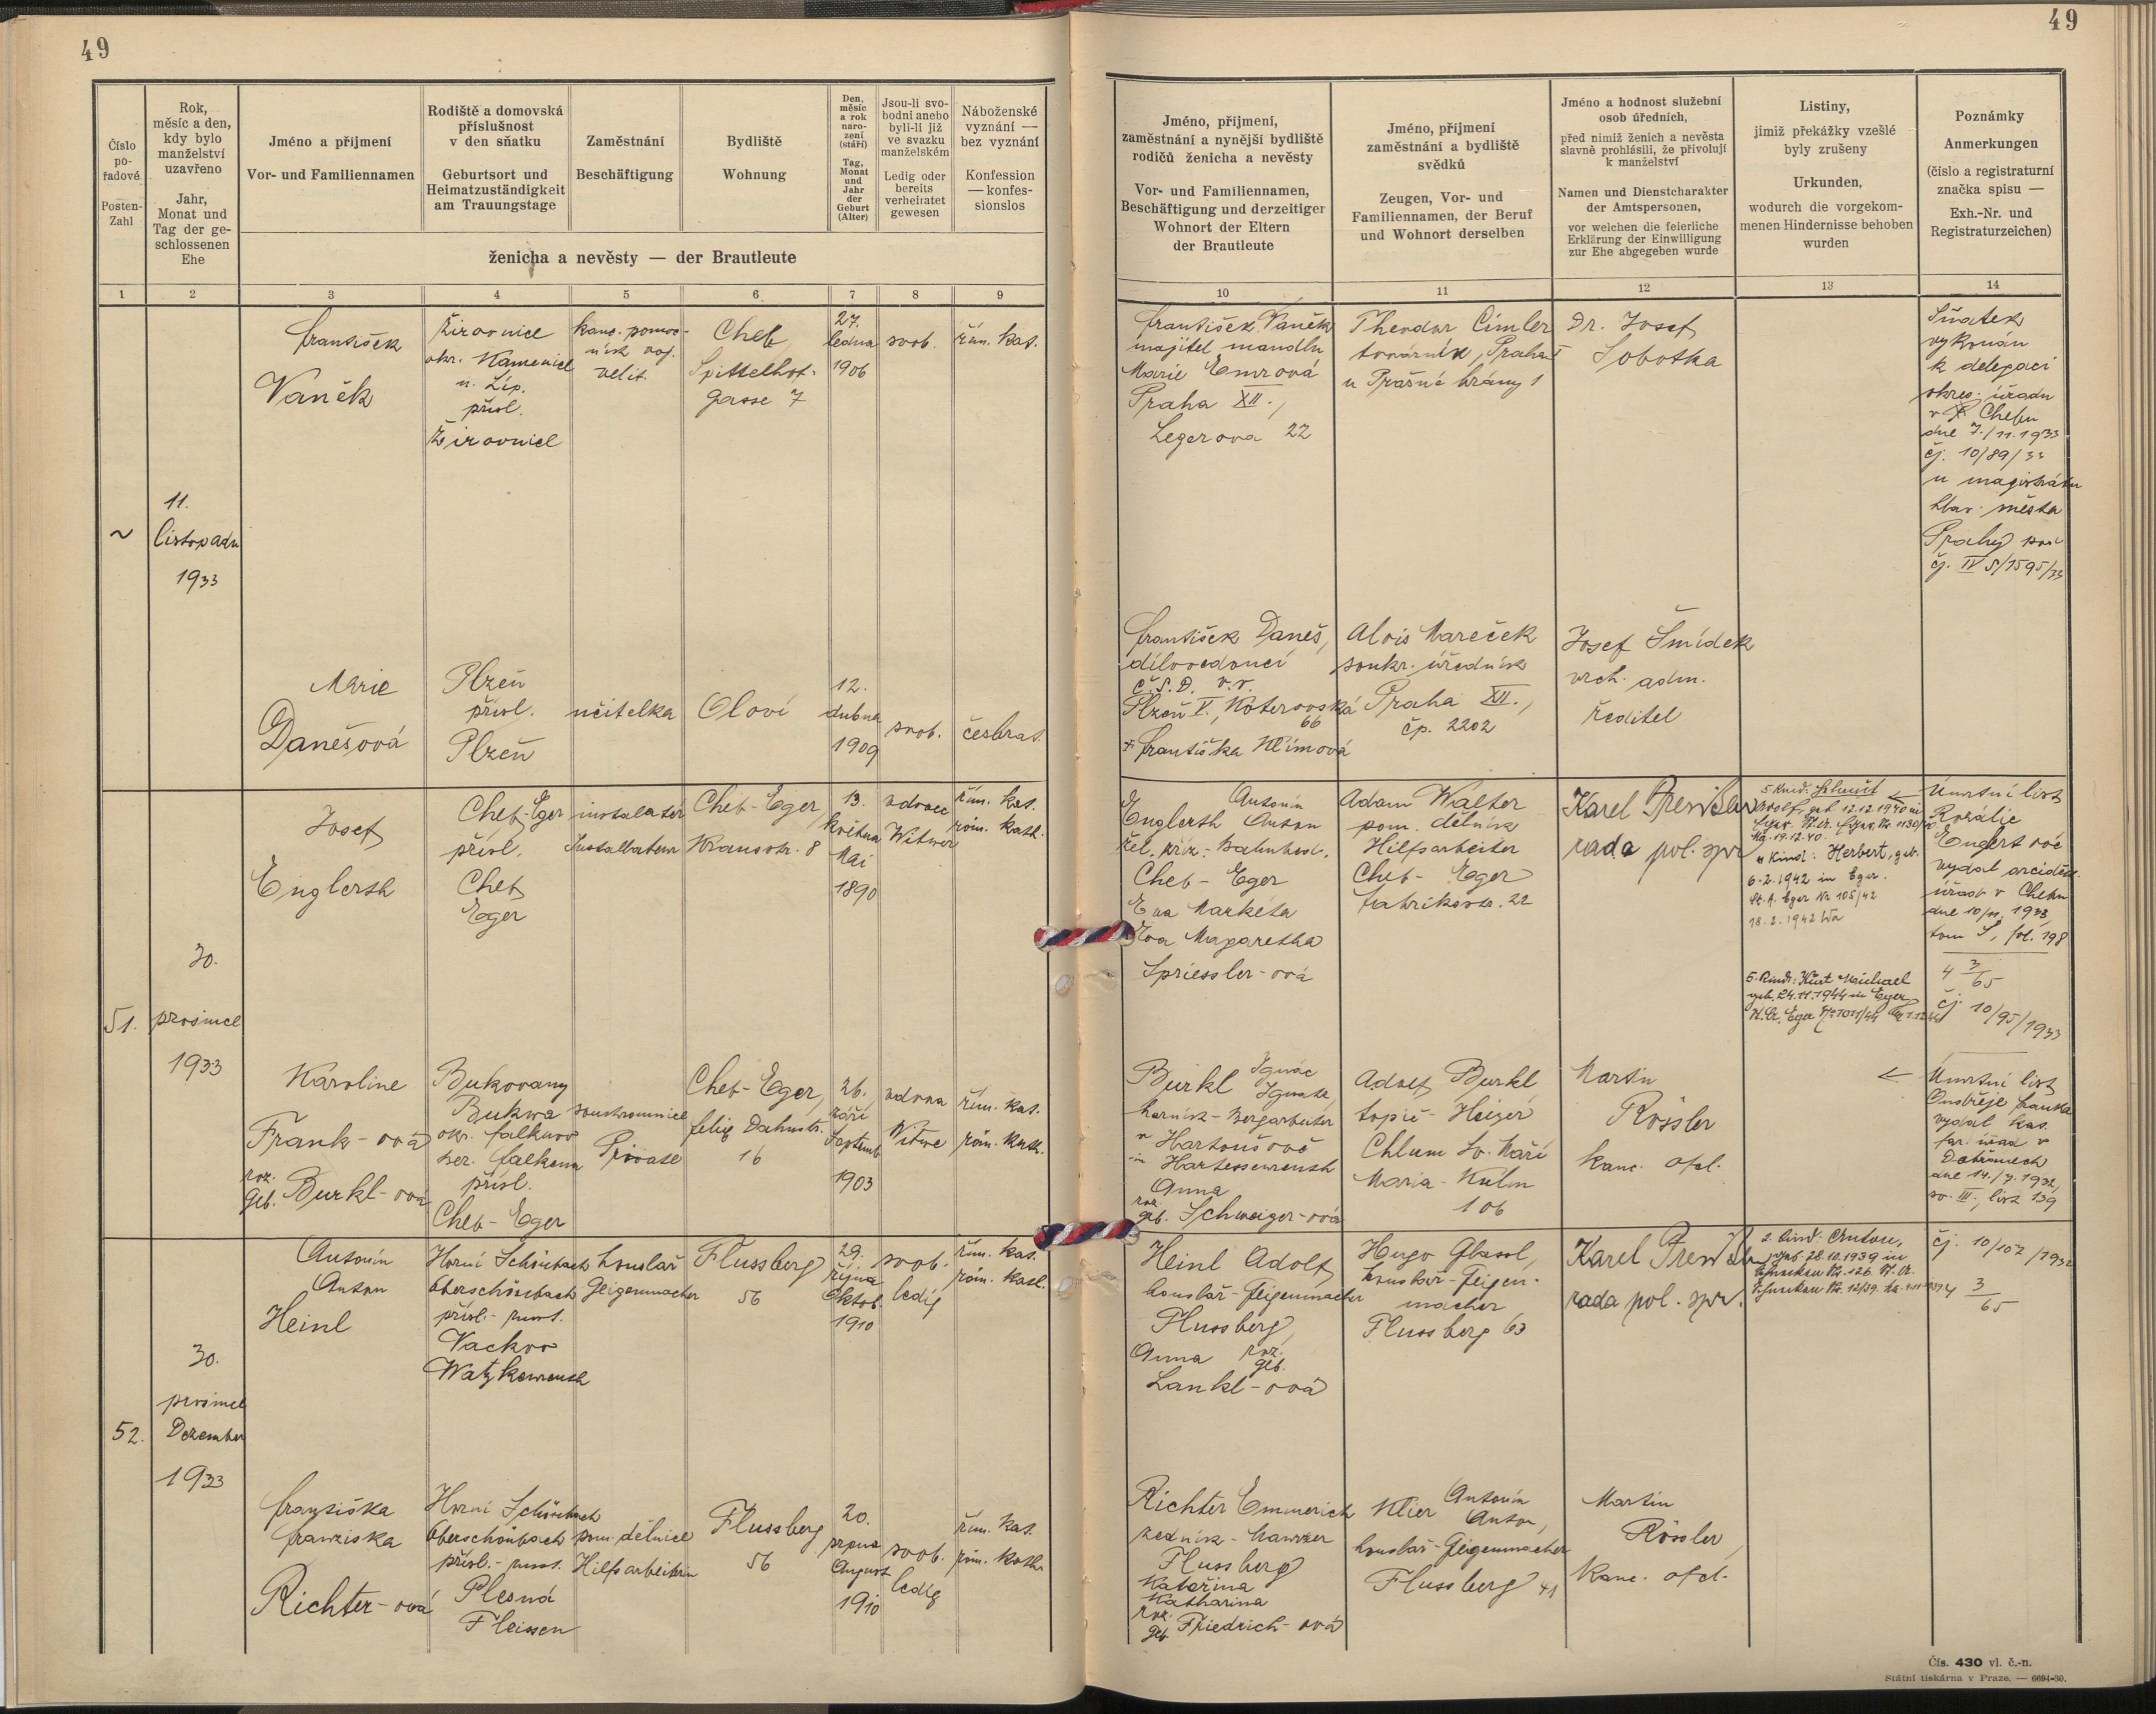 49
49
Číslo
po-
řadové
Posten-
Zahl
Rok,
měsíc a den,
kdy bylo
manželství
uzavřeno
Jahr,
Monat und
Tag der ge-
schlossenen
Ehe
Jméno a příjmení
Vor- und Familiennamen
Rodiště a domovská
příslušnost
v den sňatku
Geburtsort und
Heimatzuständigkeit
am Trauungstage
Zaměstnání
Beschäftigung
Bydliště
Wohnung
Den,
měsíc
a rok
naro-
zení
(stáří)
Tag,
Monat
und
Jahr
der
Geburt
(Alter)
Jsou-li svo-
bodni anebo
byli-li již
ve svazku
manželském
Ledig oder
bereits
verheiratet
gewesen
Náboženské
vyznání —
bez vyznání
Konfession
— konfes-
sionslos
ženicha a nevěsty — der Brautleute
Jméno, příjmení,
zaměstnání a nynější bydliště
rodičů ženicha a nevěsty
Vor- und Familiennamen,
Beschäftigung und derzeitiger
Wohnort der Eltern
der Brautleute
Jméno, příjmení
zaměstnání a bydliště
svědků
Zeugen, Vor- und
Familiennamen, der Beruf
und Wohnort derselben
Jméno a hodnost služební
osob úředních,
před nimiž ženich a nevěsta
slavně prohlásili, že přivolují
k manželství
Namen und Dienstcharakter
der Amtspersonen,
vor welchen die feierliche
Erklärung der Einwilligung
zur Ehe abgegeben wurde
Listiny,
jimiž překážky vzešlé
byly zrušeny
Urkunden,
wodurch die vorgekom-
menen Hindernisse behoben
wurden
Poznámky
Anmerkungen
(číslo a registraturní
značka spisu —
Exh.-Nr. und
Registraturzeichen)
1 2 3 4 5 6 7 8 9 10 11 12 13 14
~
11.
listopadu
1933
František
Vaněk
Žirovnice
okr. Kamenice
n. Lip.
přísl.
Žirovnice
kanc. pomoc-
ník voj.
velit.
Cheb,
Spittelhof-
gasse 7
27.
ledna
1906
svob.
řím. kat.
František Vaněk
majitel mandlu
Marie Emrová
Praha XII.,
Legerova 22
Theodor Cimler
továrník, Praha I
u Prašné brány 1
Dr. Josef
Sobotka
Sňatek
vykonán
k delegaci
okres. úřadu
v Chebu
dne 7./11.1933
čj. 10/89/33
u magistrátu
hlav. města
Prahy pod
čj. IV S/1595/33
Marie
Danešová
Plzeň
přísl.
Plzeň
učitelka
Oloví
12.
dubna
1909
svob.
česbrat.
František Daneš,
dílovedoucí
Č.S.D. v.v.
Plzeň V., Koterovská
66
+ Františka Klímová
Alois Mareček
soukr. úředník
Praha XII.,
čp. 2202
Josef Šmídek
vrch. adm.
ředitel
51.
30.
prosince
1933
Josef
Englerth
Cheb-Eger
přísl.
Cheb
Eger
instalatér
Installateur
Cheb-Eger,
Kransstr. 8
13.
května
Mai
1890
vdovec
Witwer
řím. kat.
röm. kath.
Antonín
Englerth Anton
žel. zříz.- Bahnbed.
Cheb - Eger
Eva Markéta
Eva Margaretha
Spriessler-ová
Adam Walter
pom. dělník
Hilfsarbeiter
Cheb - Eger
Fabrikstr. 22
Karel
rada pol. spr.
geb. 12.12.1940 in
Kind: Herbert, geb.
6.2.1942 in Eger.
St. A. Eger Nr 105/42
18.2.1942
5. Kind: Kurt Michael
geb. 24.11.1944 in Eger
Úmrtní list
Rozálie
Englert ové
vydal arciděk.
úřad v Chebu
dne 10/11. 1933,
tom S, fol. 198
4 3/65
čj. 10/95/1933
Karoline
Frank-ová
roz.
geb. Burkl-ová
Bukovany
Bukwa
okr. Falknov
bez. Falkenau
přísl.
Cheb-Eger
soukromnice
Private
Cheb-Eger,
16
26.
září
Septemb.
1903
vdova
Witwe
řím. kat.
röm. kath.
Ignác
Burkl Ignatz,
horník - Bergarbeiter
v Hartoušově
in Hartessenreuth
Anna
roz.
geb. Schweiger-ová
Adolf Burkl
topič - Heizer
Chlum Sv. Maří
Maria - Kulm
106
Martin
Rössler
kanc. ofcl.
Úmrtní list
Ondřeje Franka
vydal kat.
far. úřad v
dne 14./7. 1932,
sv. III., list 139
52.
30.
prosince
Dezember
1933
Antonín
Anton
Heinl
Horní Schönbach
Oberschönbach
přísl. - zust.
Vackov
Watzkenreuth
houslař
Geigenmacher
Flussberg
56
29.
října
Oktob.
1910
svob.
ledig
řím. kat.
röm. kath.
Heinl Adolf
houslař - Geigenmacher
Flussberg,
Anna roz.
geb.
Lankl-ová
Hugo Glassl,
houslař - Geigen-
macher
Flussberg 63
Karel
rada pol. spr.
2. Kind: Anton,
geb. 28.10.1939 in
čj. 10/107/1933
4 3/65
Františka
Franziska
Richter-ová
Horní Schönbach
Oberschönbach
přísl. - zust.
Plesná
Fleissen
pom. dělnice
Hilfsarbeiterin
Flussberg
56
20.
srpna
August
1910
svob.
ledig
řím. kat.
röm. kath.
Richter Emmerich
zedník - Maurer
Flussberg
Kateřina
Katharina
roz.
geb. Friedrich-ová
Antonín
Klier Anton,
houslař - Geigenmacher
Flussberg 41
Martin
Rössler,
kanc. ofcl.
Čís. 430 vl. č.-n.
Státní tiskárna v Praze. — 6694-30.